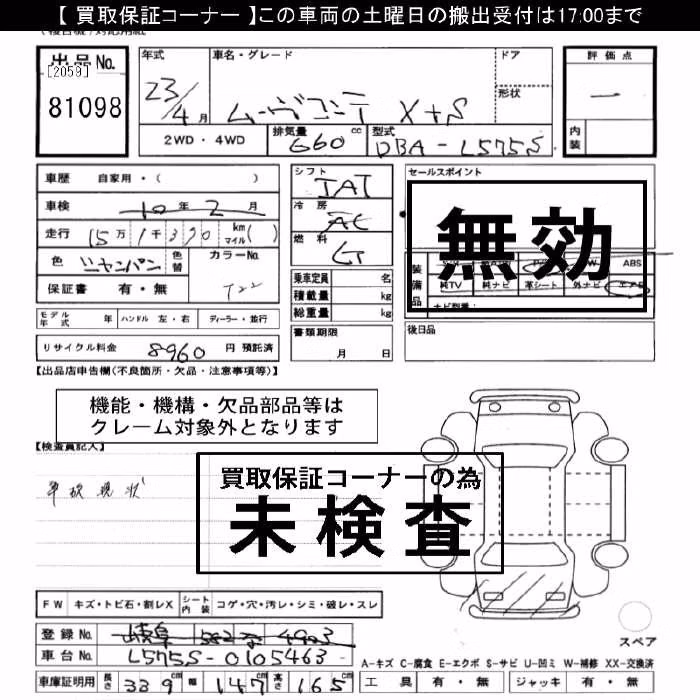 【 買取保証コーナー 】この車両の土曜日の搬出受付は17:00まで
出品No.
[2059]
81098
年式
23/4月
車名・グレード
ムーヴコンテ X+S
ドア
形状
評価点
一
内装
2WD・4WD
排気量
660cc
型式
DBA-L575S
車歴 自家用・( )
車検 10年2月
走行 15万1千390 km マイル( )
色 シャンパン
色替
カラーNo.
T22
保証書 有・無
シフト
IAT
冷房
AC
燃料
G
乗車定員 名
積載量 kg
総重量 kg
セールスポイント
無効
装備品
ABS
純TV 純ナビ 革シート 外ナビ エアB
ナビ型番:
モデル年式 年 ハンドル 左・右 ディーラー・並行
リサイクル料金 8960 円 預託済
書類期限
月 日
後日品
【出品店申告欄(不良箇所・欠品・注意事項等)】
機能・機構・欠品部品等は
クレーム対象外となります
【検査員記入】
買取保証コーナーの為
未検査
車検現状
FW キズ・トビ石・割レX
シート内装 コゲ・穴・汚レ・シミ・破レ・スレ
登録No. 岐阜 582 4923
車台No. L575S-0105463
スペア
A-キズ C-腐食 E-エクボ S-サビ U-凹ミ W-補修 XX-交換済
車庫証明用 長さ 339cm 幅 147cm 高さ 165cm
工具 有・無 ジャッキ 有・無